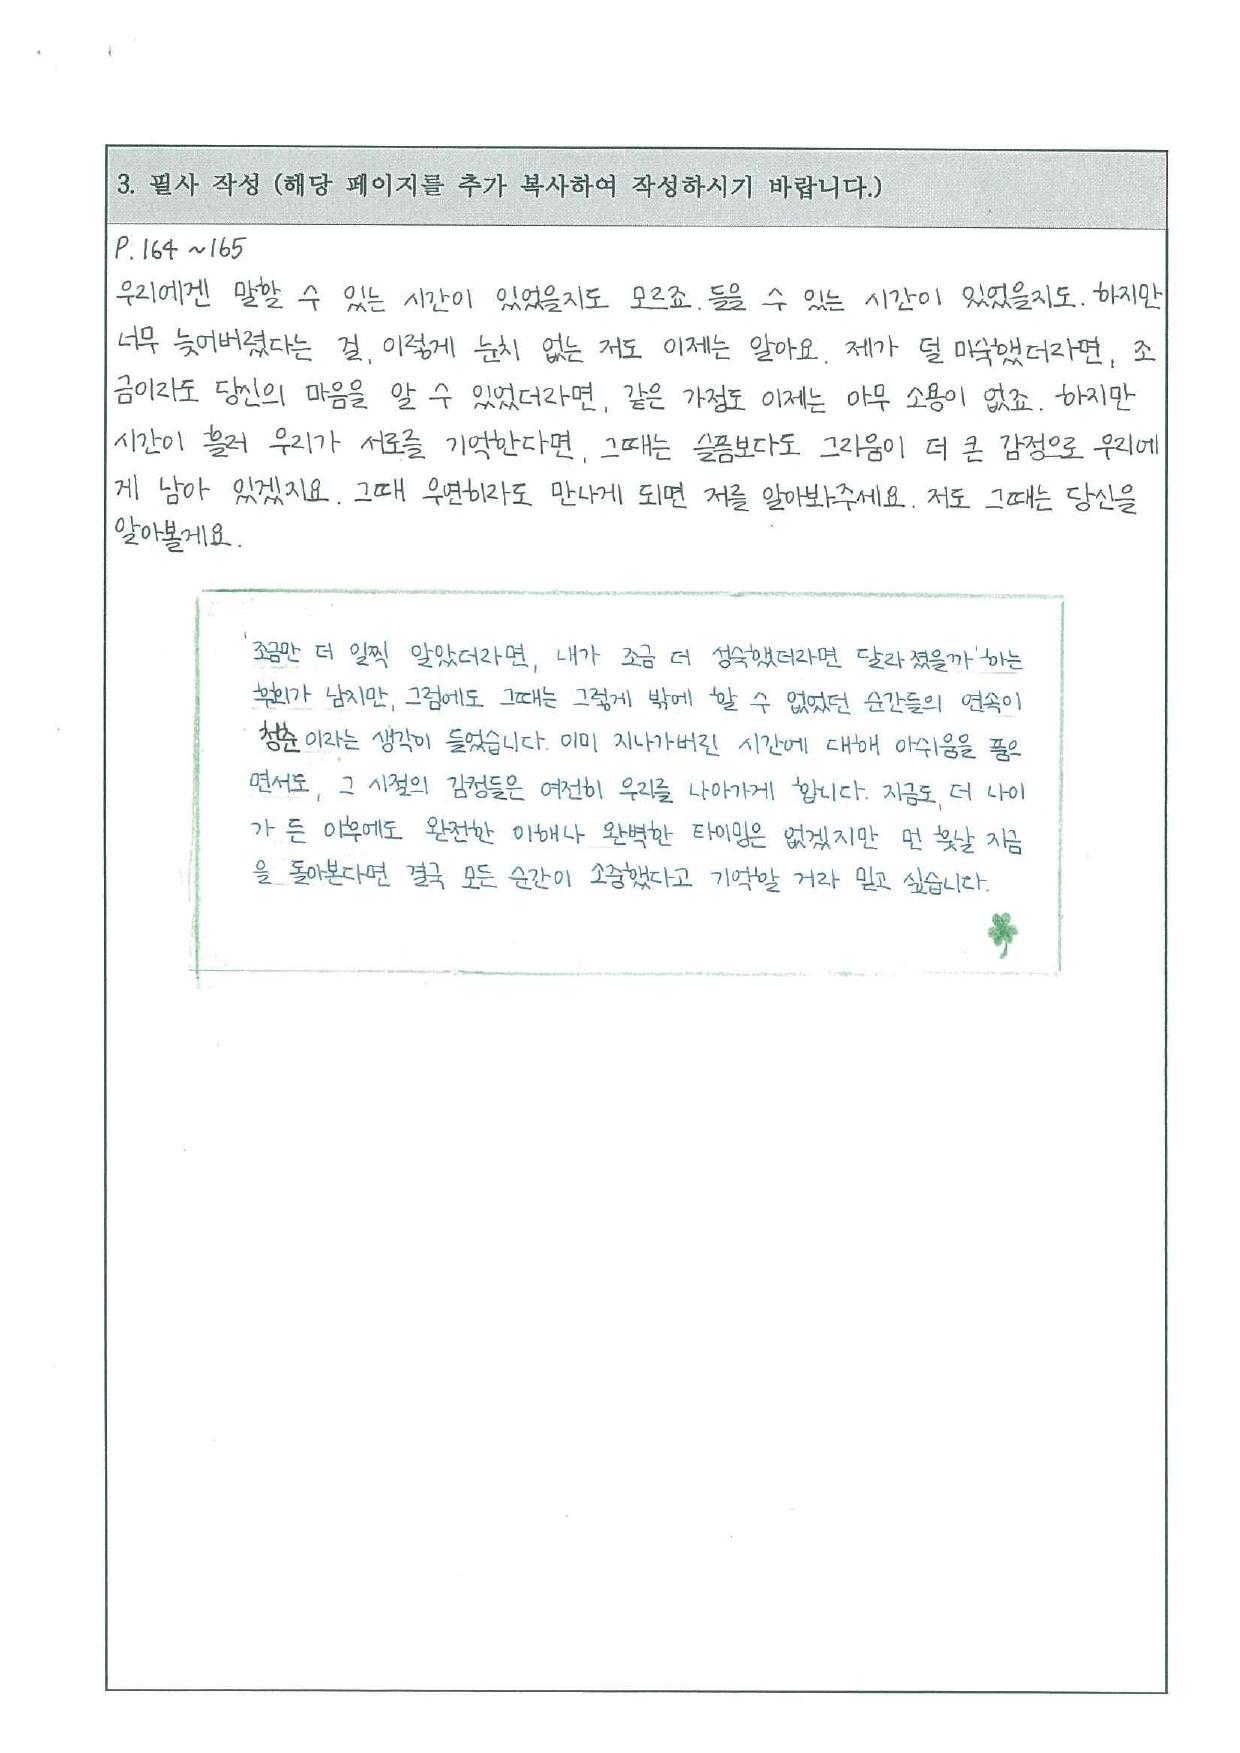 3. 필사 작성 (해당 페이지를 추가 복사하여 작성하시기 바랍니다.)
P. 164 ~165
우리에겐 말할 수 있는 시간이 있었을지도 모르죠. 들을 수 있는 시간이 있었을지도. 하지만
너무 늦어버렸다는 걸, 이렇게 눈치 없는 저도 이제는 알아요. 제가 덜 미숙했더라면, 조
금이라도 당신의 마음을 알 수 있었더라면, 같은 가정도 이제는 아무 소용이 없죠. 하지만
시간이 흘러 우리가 서로를 기억한다면, 그때는 슬픔보다도 그리움이 더 큰 감정으로 우리에
게 남아 있겠지요. 그때 우연히라도 만나게 되면 저를 알아봐주세요. 저도 그때는 당신을
알아볼게요.
'조금만 더 일찍 알았더라면, 내가 조금 더 성숙했더라면 달라졌을까' 하는
후회가 남지만, 그럼에도 그때는 그렇게 밖에 할 수 없었던 순간들의 연속이
청춘이라는 생각이 들었습니다. 이미 지나가버린 시간에 대해 아쉬움을 품으
면서도, 그 시절의 감정들은 여전히 우리를 나아가게 합니다. 지금도, 더 나이
가 든 이후에도 완전한 이해나 완벽한 타이밍은 없겠지만 먼 훗날 지금
을 돌아본다면 결국 모든 순간이 소중했다고 기억할 거라 믿고 싶습니다.